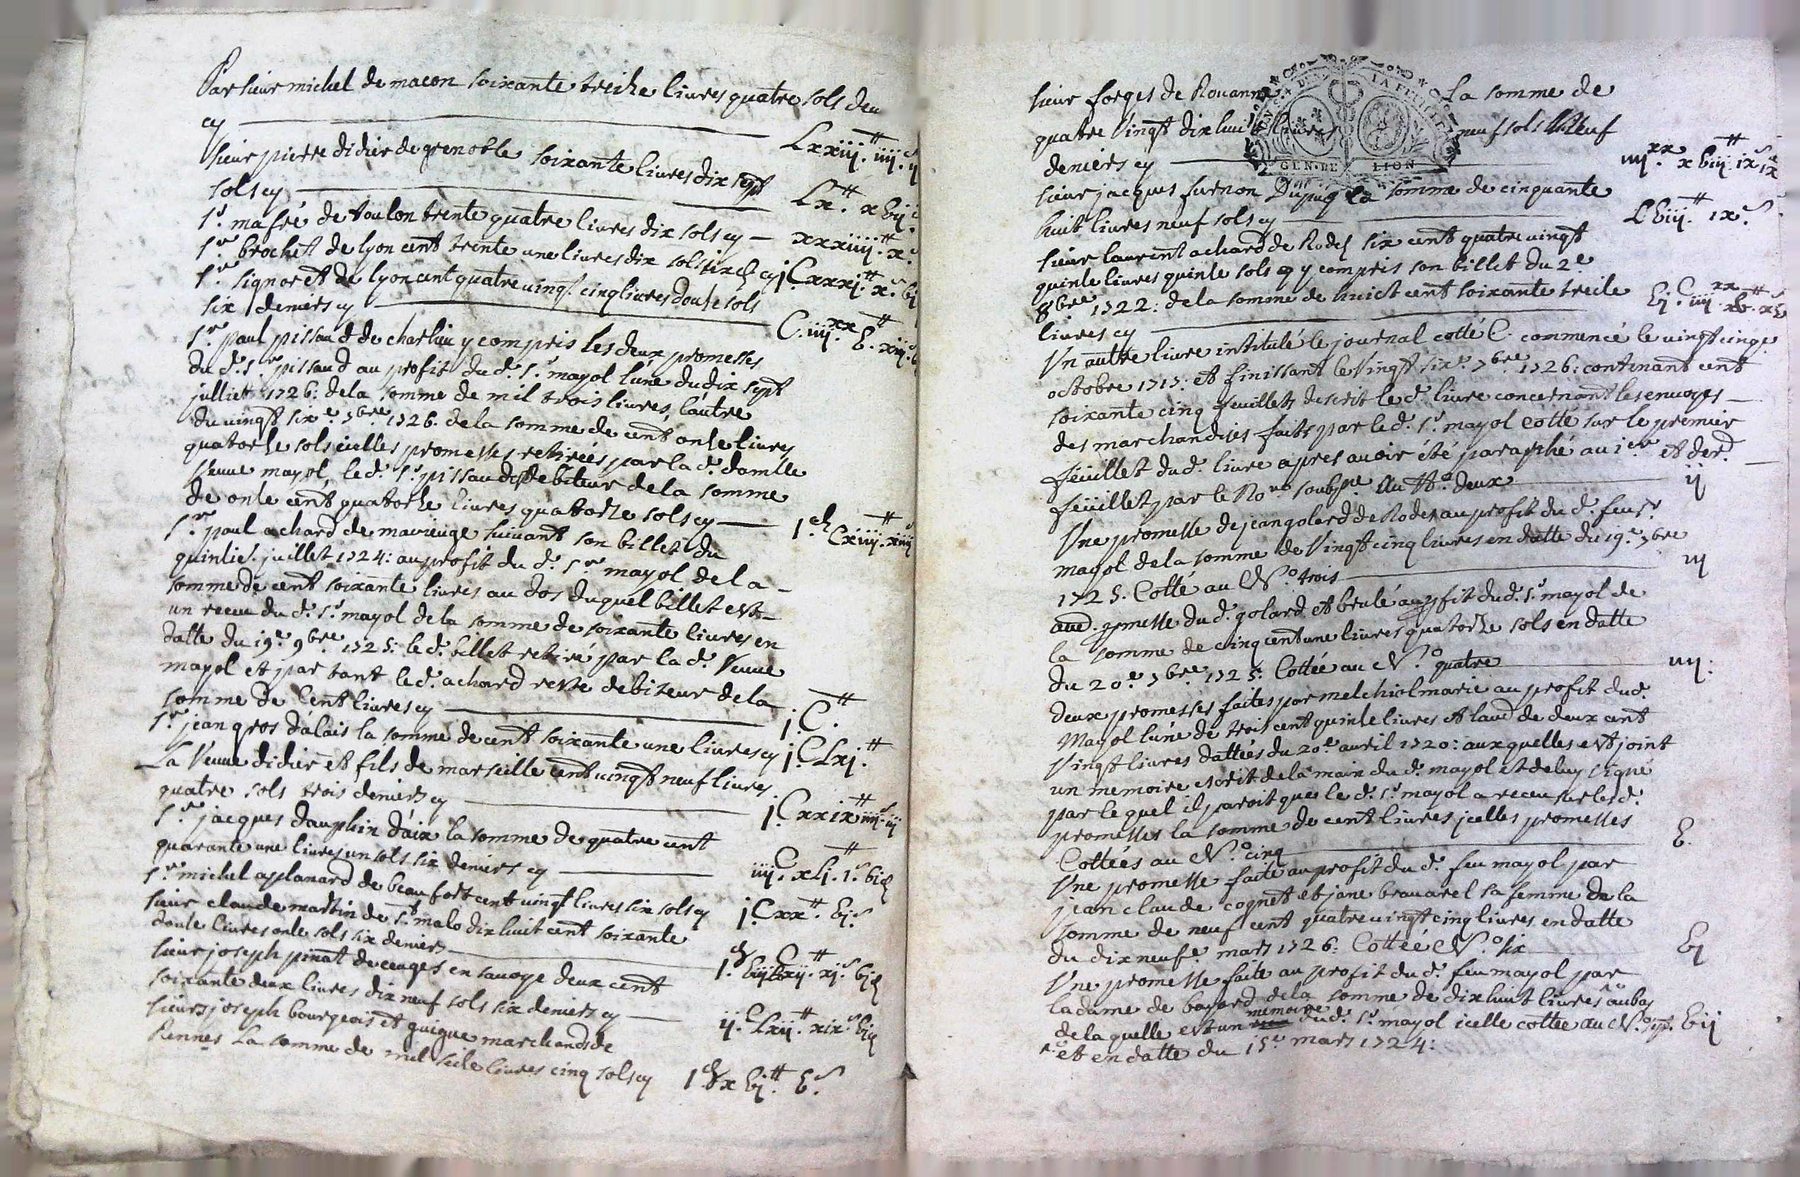 Par sieur michel de macon soixante treize livres quatre sols deu
cy LXXiij.tt iiij.s
Sieur pierre didier de grenoble soixante livres dix sept
sols cy LX.tt xbij
Sr. mafré de toulon trente quatre livres dix sols cy xxxiiij.tt x.s
Sr. brochet de lyon cent trente une livres dix sols six d. cy j.C xxxj.tt x.s bj
Sr. signoret de lyon cent quatre vingt cinq livres douse sols
six deniers cy C.iiij.xx b.tt xij.s
Sr. paul pissaud de charlieu y compris les deux promesses
du d. Sr. pissaud au profit du d. Sr. mayol lune du dix sept
julliet 1726: de la somme de mil trois livres, lautre
du vingt six.e 7bre 1726. de la somme de cent onse livres
quatorze sols icelles promesses retirées par la d. damlle
Veuve mayol, le d. Sr. pissaud debiteur de la somme
de onse cent quatorze livres quatorze sols cy 1.m Cxiiij.tt xiiij
Sr. paul achard de suivant son billet du
quinsie. juillet 1724: au profit du d. Sr. mayol de la
somme de cent soixante livres au dos duquel billet est
un receu du d. Sr. mayol de la somme de soixante livres en
datte du 19.e 9bre 1725: le d. billet retiré par la d. Veuve
mayol et par tant le d. achard reste debiteur de la
somme de Cent livres cy j.C.tt
Sr. jean gros dalais la somme de cent soixante une livres cy j.C Lxj.tt
La Veuve didier et fils de marseille cent vingt neuf livres
quatre sols trois deniers cy j.C xxix.tt iiij.s iij
Sr. jacques dauphin daix la somme de quatre cent
quarante une livres un sols six deniers cy iiij.C xLj.tt 1.s bj d
Sr. michel aplanard de beaufort cent vingt livres six sols cy j.C xx.tt bj.s
Sieur claude martin de St. malo dix huit cent soixante
douse livres onse sols six deniers 1.m biij.C Lxij.tt xj.s bj d
Sieur joseph pinat en savoye deux cent
soixante deux livres dix neuf sols six deniers cy ij.C Lxij.tt xix.s bj d
Sieurs joseph bourgeois et guigue marchands de
Rennes La somme de mil seise livres cinq sols cy 1.m xbj.tt b.s
Sieur forges de Rouanne La somme de
quatre Vingt dix huit livres neuf sols neuf
deniers cy iiij.xx xbiij.tt ix.s ix
GEN. DE LION
Sieur jacques furnon Dupuy la somme de cinquante
huit livres neuf sols cy Lbiij.tt ix.s
Sieur laurent achard de Rodez six cent quatre vingt
quinse livres quinse sols cy y compris son billet du 2.e
8bre 1722: de la somme de huict cent soixante treise
livres cy bj.C iiij.xx xb.tt xb
Un autre livre intitulé le journal cotté C. commencé le vingt cinq.e
octobre 1717: et finissant le Vingt six.e 7bre 1726: contenant cent
soixante cinq feuillets descrit le d. livre concernant les envoyes
des marchandises faits par le d. Sr. mayol cotté sur le premier
feuillet du d. livre apres avoir été paraphé au 1.er et der.
feüillet par le No.re soubsne. au No. deux ij
Une promesse de jean golard de Rodez au profit du d. feu Sr.
mayol de la somme de Vingt cinq livres en datte du 19.e 7bre
1725. Cottée au No. trois iij
aud. promesse du d. golard et brulé au pfit du d. Sr. mayol de
la somme de cinq cent une livres quatorze sols en datte
du 20.e 7bre 1725: Cottée au No. quatre iiij:
Deux promesses faites par melchiol marie au profit du d.
Mayol lune de trois cent quinse livres et laud. de deux cent
Vingt livres dattées du 20.e avril 1720: auxquelles est joint
un memoire escrit de la main du d. mayol et de luy signé
par lequel il paroit que le d. Sr. mayol a receu sur les d.
promesses la somme de cent livres jcelles promesses
Cottées au No. cinq b.
Une promesse faite au profit du d. feu mayol par
jean claude cognet et jane bravarel sa femme de la
somme de neuf cent quatre vingt cinq livres en datte
du dix neuf.e mars 1726: Cottée No. six bj
Une promesse faite au profit du d. feu mayol par
la dame de bayard de la somme de dix huit livres au bas
de laquelle est un memoire du d. Sr. mayol icelle cottée au No. sept. bij
et en datte du 15.e mars 1724: